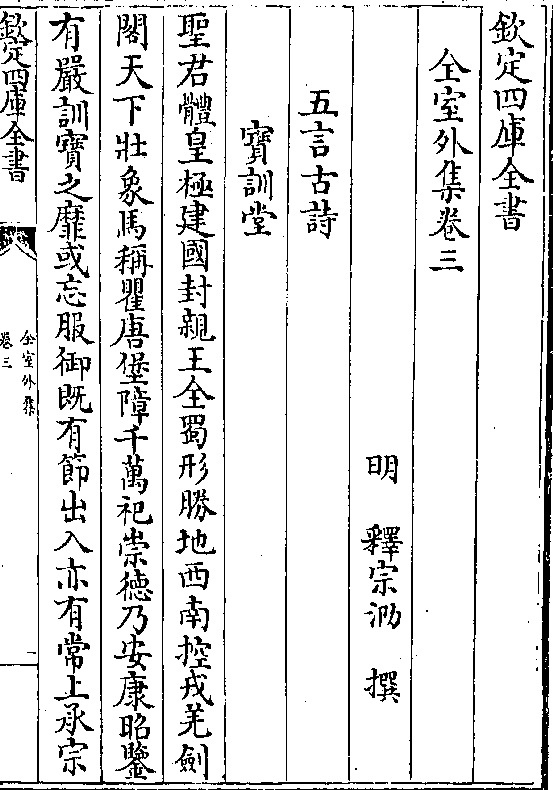 欽定四庫全書
全室外集卷三
明　釋宗泐　撰
五言古詩
寳訓堂
聖君體皇極建國封親王全蜀形勝地西南控戎羌劍
閣天下壯象馬稱瞿唐堡障千萬祀崇徳乃安康昭鑒
有嚴訓寳之靡或忘服御既有節出入亦有常上承宗
欽定四庫全書
全室外集
卷三
一